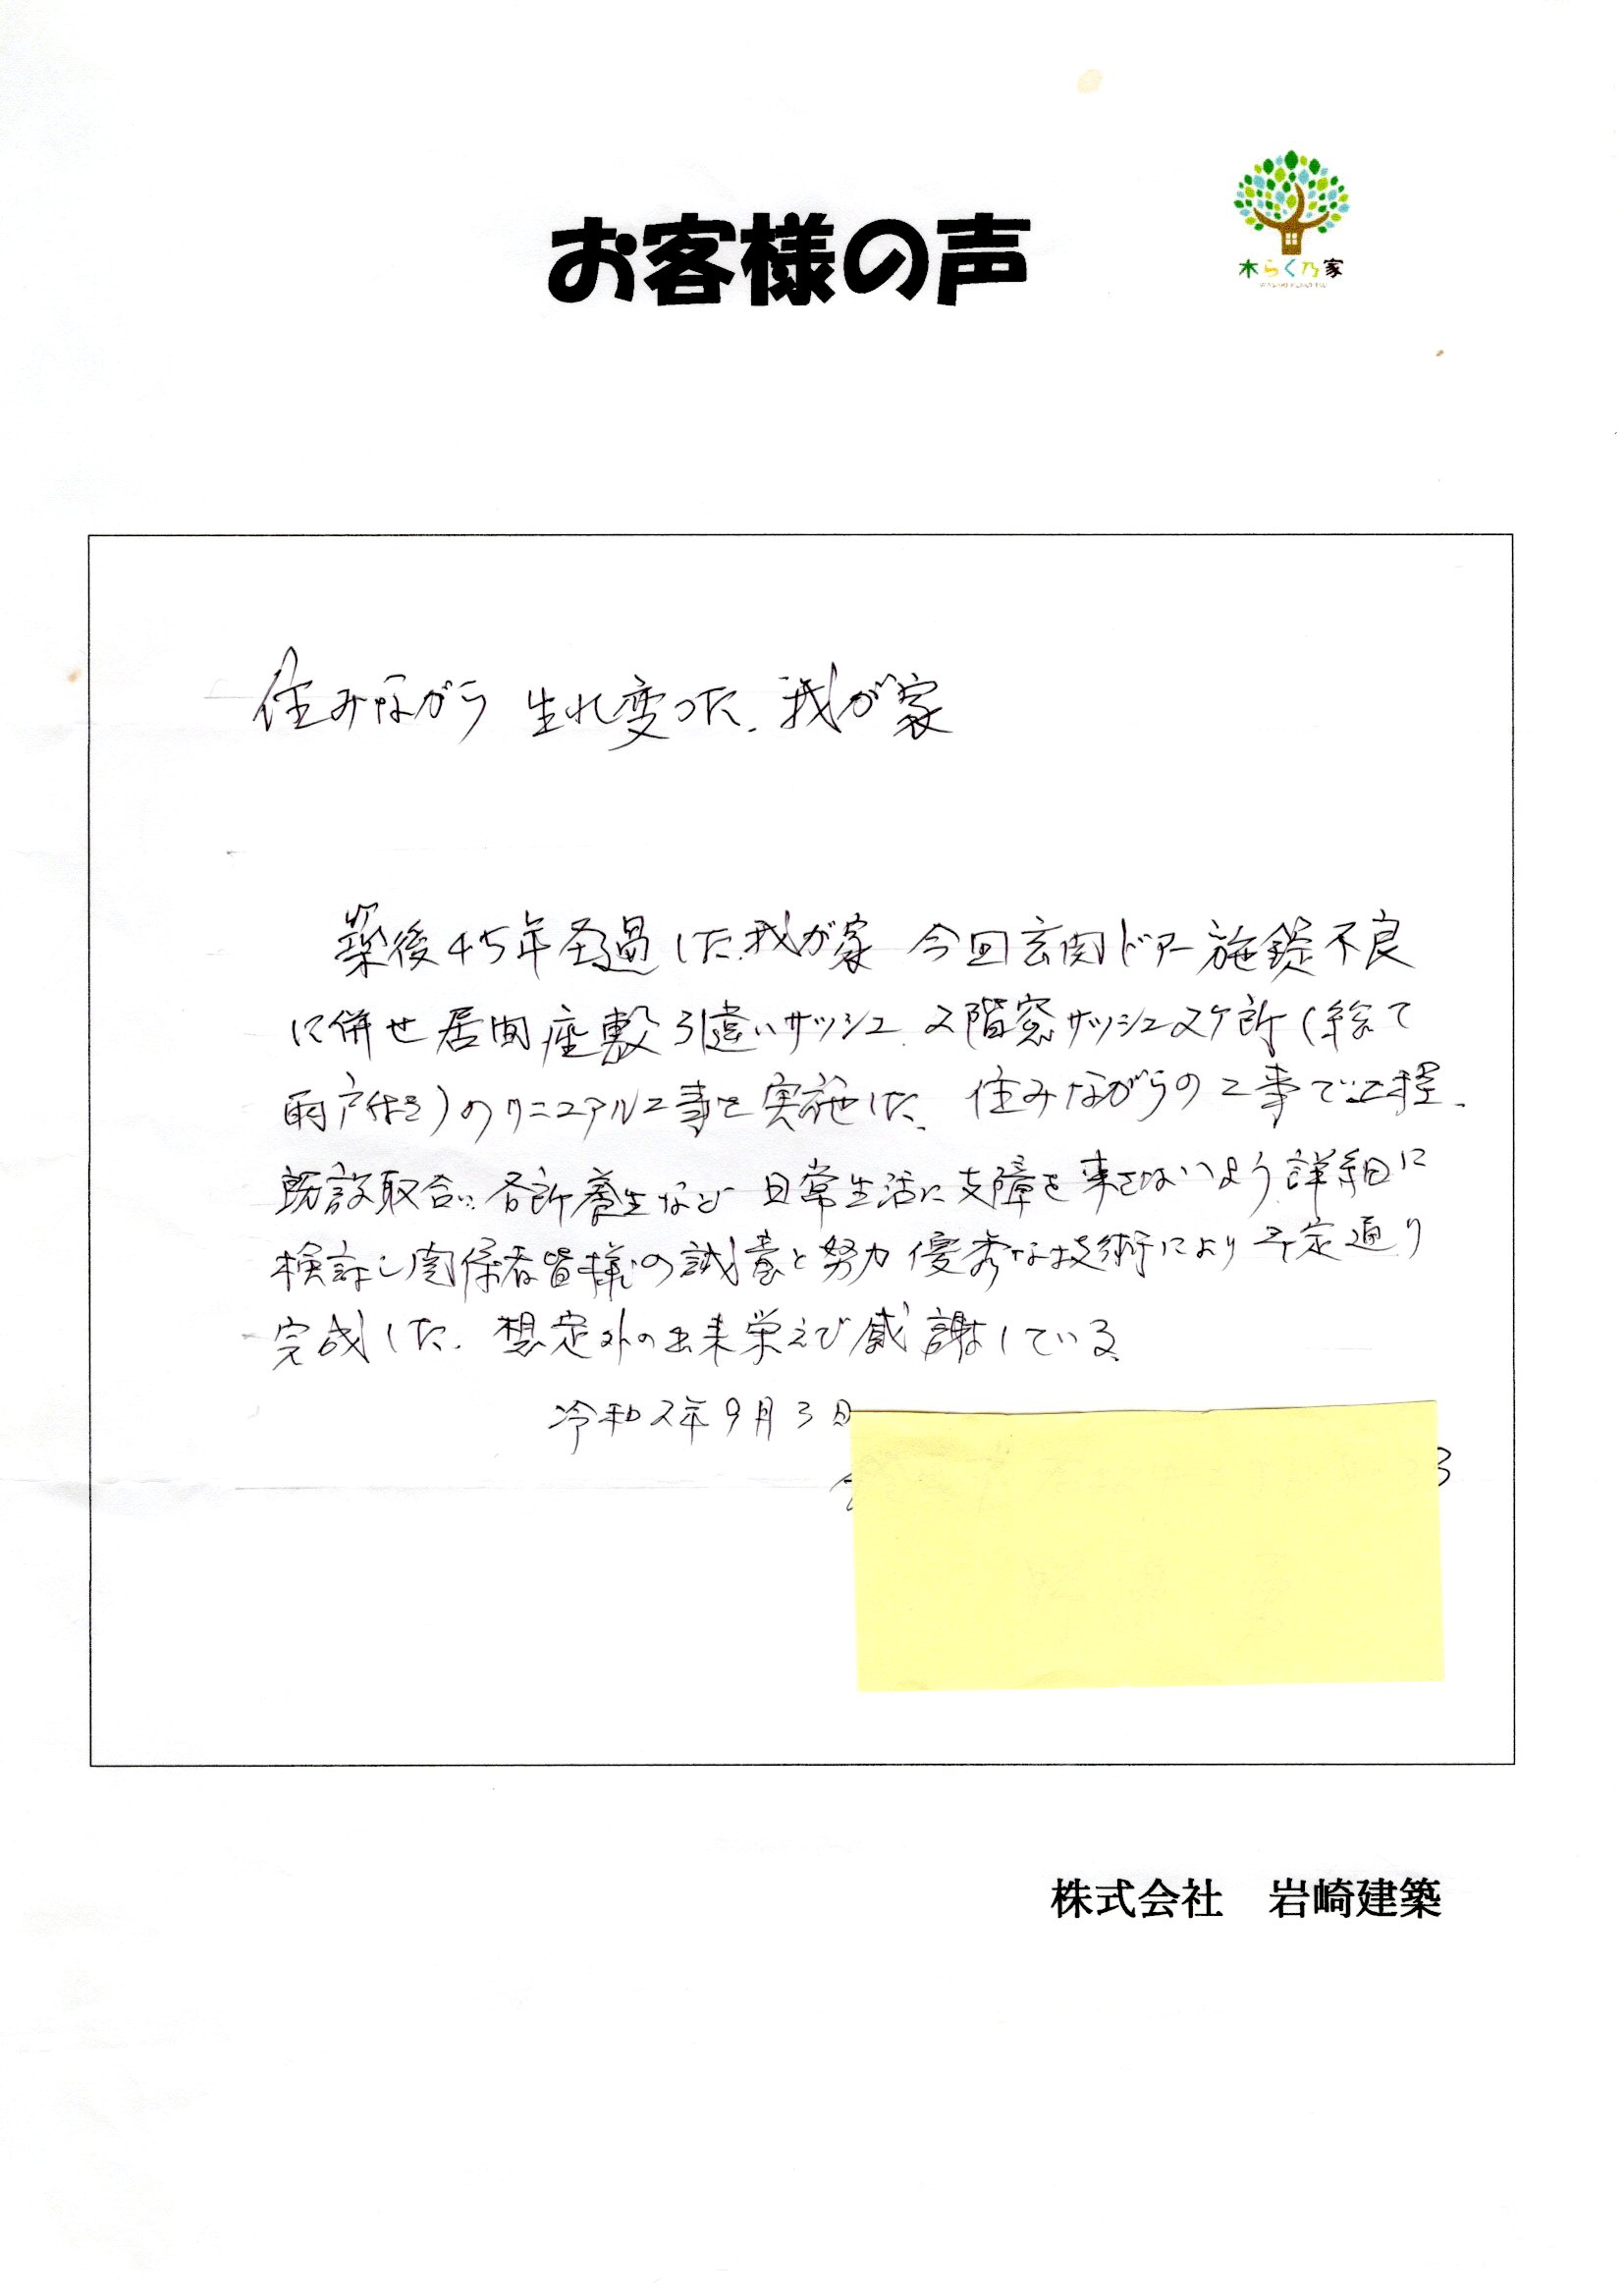 お客様の声
木らく乃家
住みながら 生れ変った、我が家
築後45年経過した我が家 今回玄関ドアー施錠不良
に併せ居間座敷引違いサッシュ、2階窓サッシュ2ケ所(全て
雨戸付き)のリニュアル工事を実施した。住みながらの工事で工程、
既設取合い各所養生など日常生活に支障を来さないよう詳細に
検討し関係者皆様の誠意と努力 優秀な技術により予定通り
完成した。想定外の出来栄えで感謝している。
令和2年9月3日
株式会社 岩崎建築